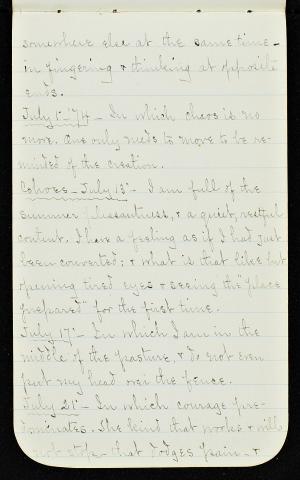 somewhere else at the same time -
in fingering & thinking at opposite
ends.
July 1st '74 - In which chaos is no
more. One only needs to move to be re-
minded of the creation.
Cohoes - July 13th - I am full of the
summer pleasantness, & a quiet, restful
content. I have a feeling as if I had just
been converted; & what is that like but
opening tired eyes & seeing the "place
prepared" for the first time.
July 17th - In which I am in the
middle of the pasture, & do not even
put my head over the fence.
July 21st - In which courage pre-
dominates. The kind that works & will
not stop - that dodges pain - &